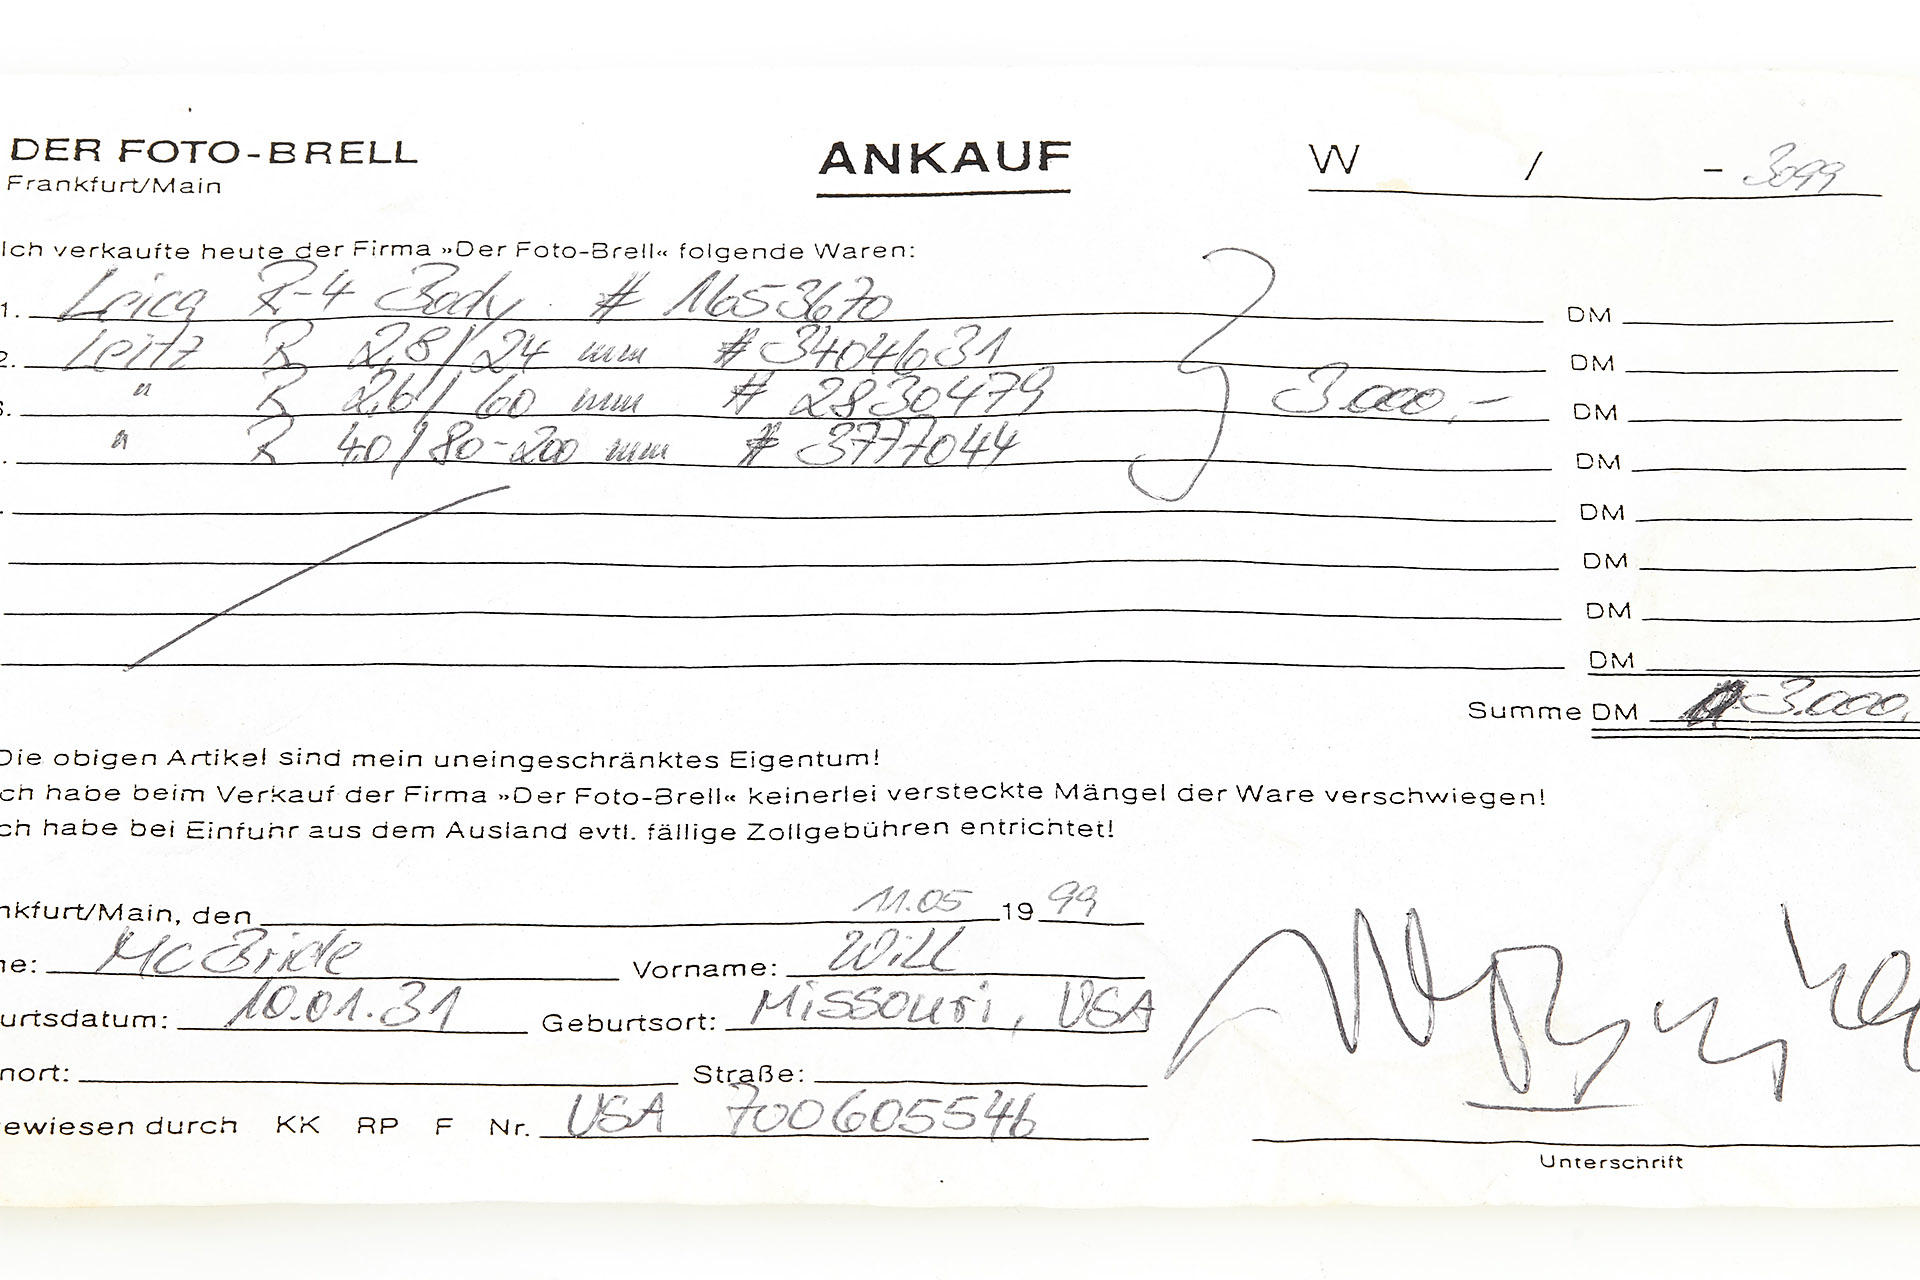 DER FOTO-BRELL
Frankfurt/Main
ANKAUF
W / - 3099
Ich verkaufte heute der Firma »Der Foto-Brell« folgende Waren:
1. Leica R-4 Body # 1653670 DM
2. Leitz R 2,8/24 mm # 3404631 DM
3. " R 2,6/60 mm # 2830479 3.000,- DM
. " R 4.0/80-200 mm # 3777044 DM
. DM
DM
DM
DM
Summe DM 3.000,
Die obigen Artikel sind mein uneingeschränktes Eigentum!
ch habe beim Verkauf der Firma »Der Foto-Brell« keinerlei versteckte Mängel der Ware verschwiegen!
ch habe bei Einfuhr aus dem Ausland evtl. fällige Zollgebühren entrichtet!
nkfurt/Main, den 11.05 19 99
ne: McBride Vorname: Will
urtsdatum: 10.01.31 Geburtsort: Missouri, USA
nort: Straße:
ewiesen durch KK RP F Nr. USA 700605546
Unterschrift